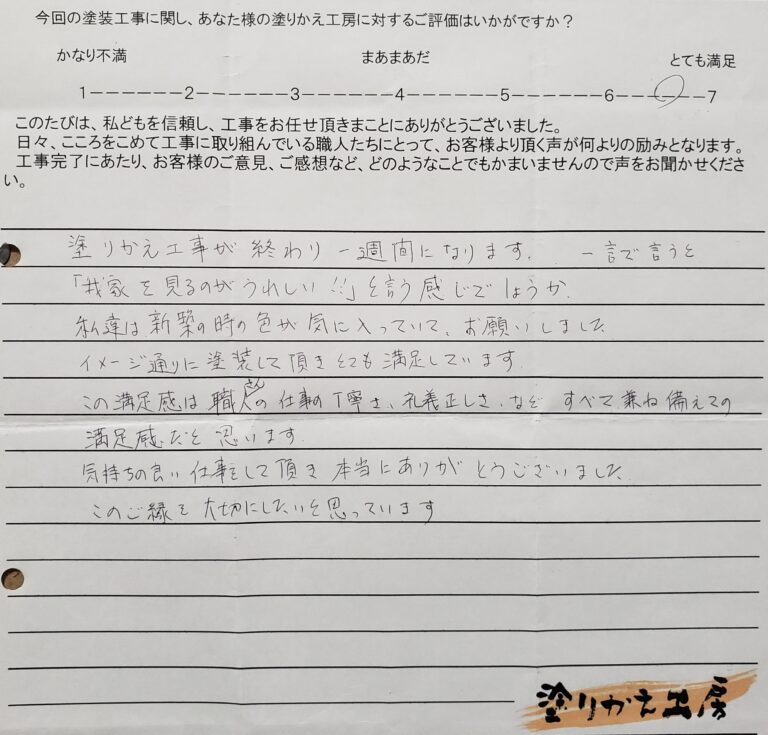 今回の塗装工事に関し、あなた様の塗りかえ工房に対するご評価はいかがですか？
かなり不満 まあまあだ とても満足
1－－－－－－2－－－－－－3－－－－－－4－－－－－－5－－－－－－6－－－－－－7
このたびは、私どもを信頼し、工事をお任せ頂きまことにありがとうございました。
日々、こころをこめて工事に取り組んでいる職人たちにとって、お客様より頂く声が何よりの励みとなります。
工事完了にあたり、お客様のご意見、ご感想など、どのようなことでもかまいませんので声をお聞かせくださ
い。
塗りかえ工事が終わり一週間になります。 一言で言うと
「我家を見るのがうれしい!!」と言う感じでしょうか。
私達は新築の時の色が気に入っていて、お願いしました
イメージ通りに塗装して頂きとても満足しています。
この満足感は職人さんの仕事の丁寧さ、礼義正しさ、など すべて兼ね備えての
満足感だと思います。
気持ちの良い仕事をして頂き本当にありがとうございました。
このご縁を大切にしたいと思っています
塗りかえ工房